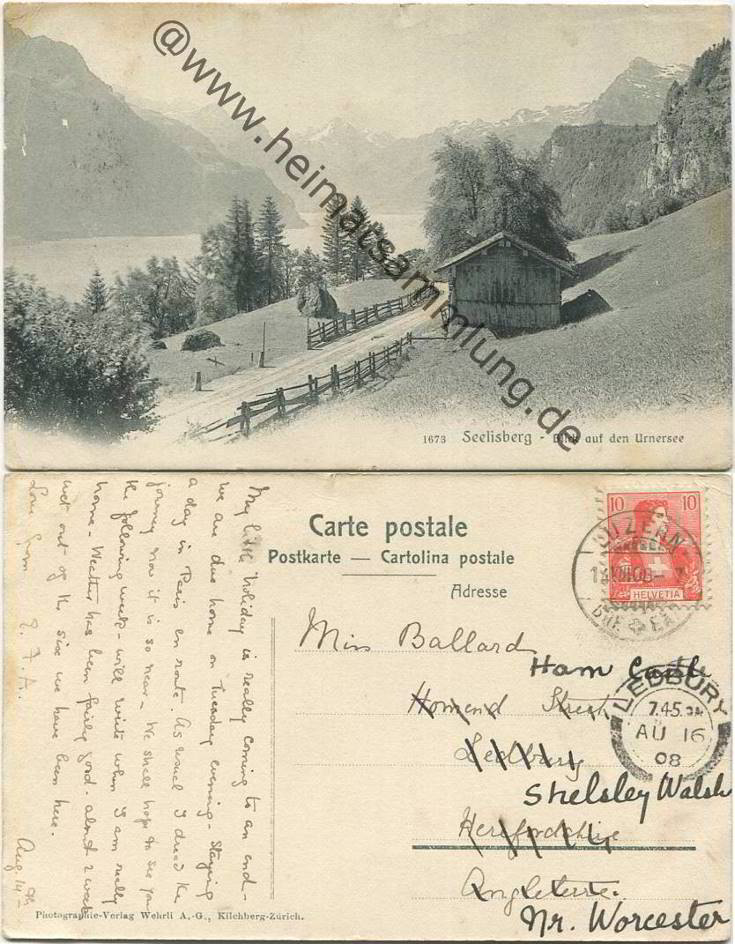 @www.heimatsammlung.de
1673 Seelisberg - Blick auf den Urnersee
Carte postale
Postkarte — Cartolina postale
Adresse
10 10
HELVETIA
LUZERN
Miss Ballard
Ham Castle
Homend Street
Ledbury
Shelsley Walsh
Herefordshire
Angleterre.
Nr. Worcester
LEDBURY
7.45.PM
AU 16
08
My little holiday is really coming to an end -
we are due home on Tuesday evening - Staying
a day in Paris en route. As usual I dread the
journey now it is so near - We shall hope to see you
the following week - will write when I am really
home - Weather has been fairly good - about 2 weeks
wet out of the six we have been here.
Love from
Aug. 14th
Photographie-Verlag Wehrli A.-G., Kilchberg-Zürich.